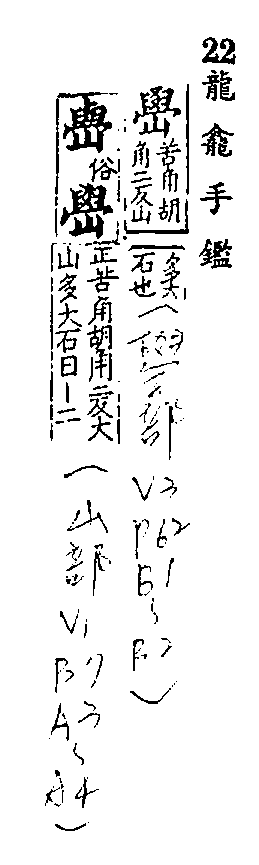 22 龍龕手鑑
嶨 苦角胡
角二反山
多大
石也 (與部 V3 P62 B1 B2)
俗 嶨 正苦角胡角二反大
山多大石曰ー二
(山部 V1 P73 A3 A4)